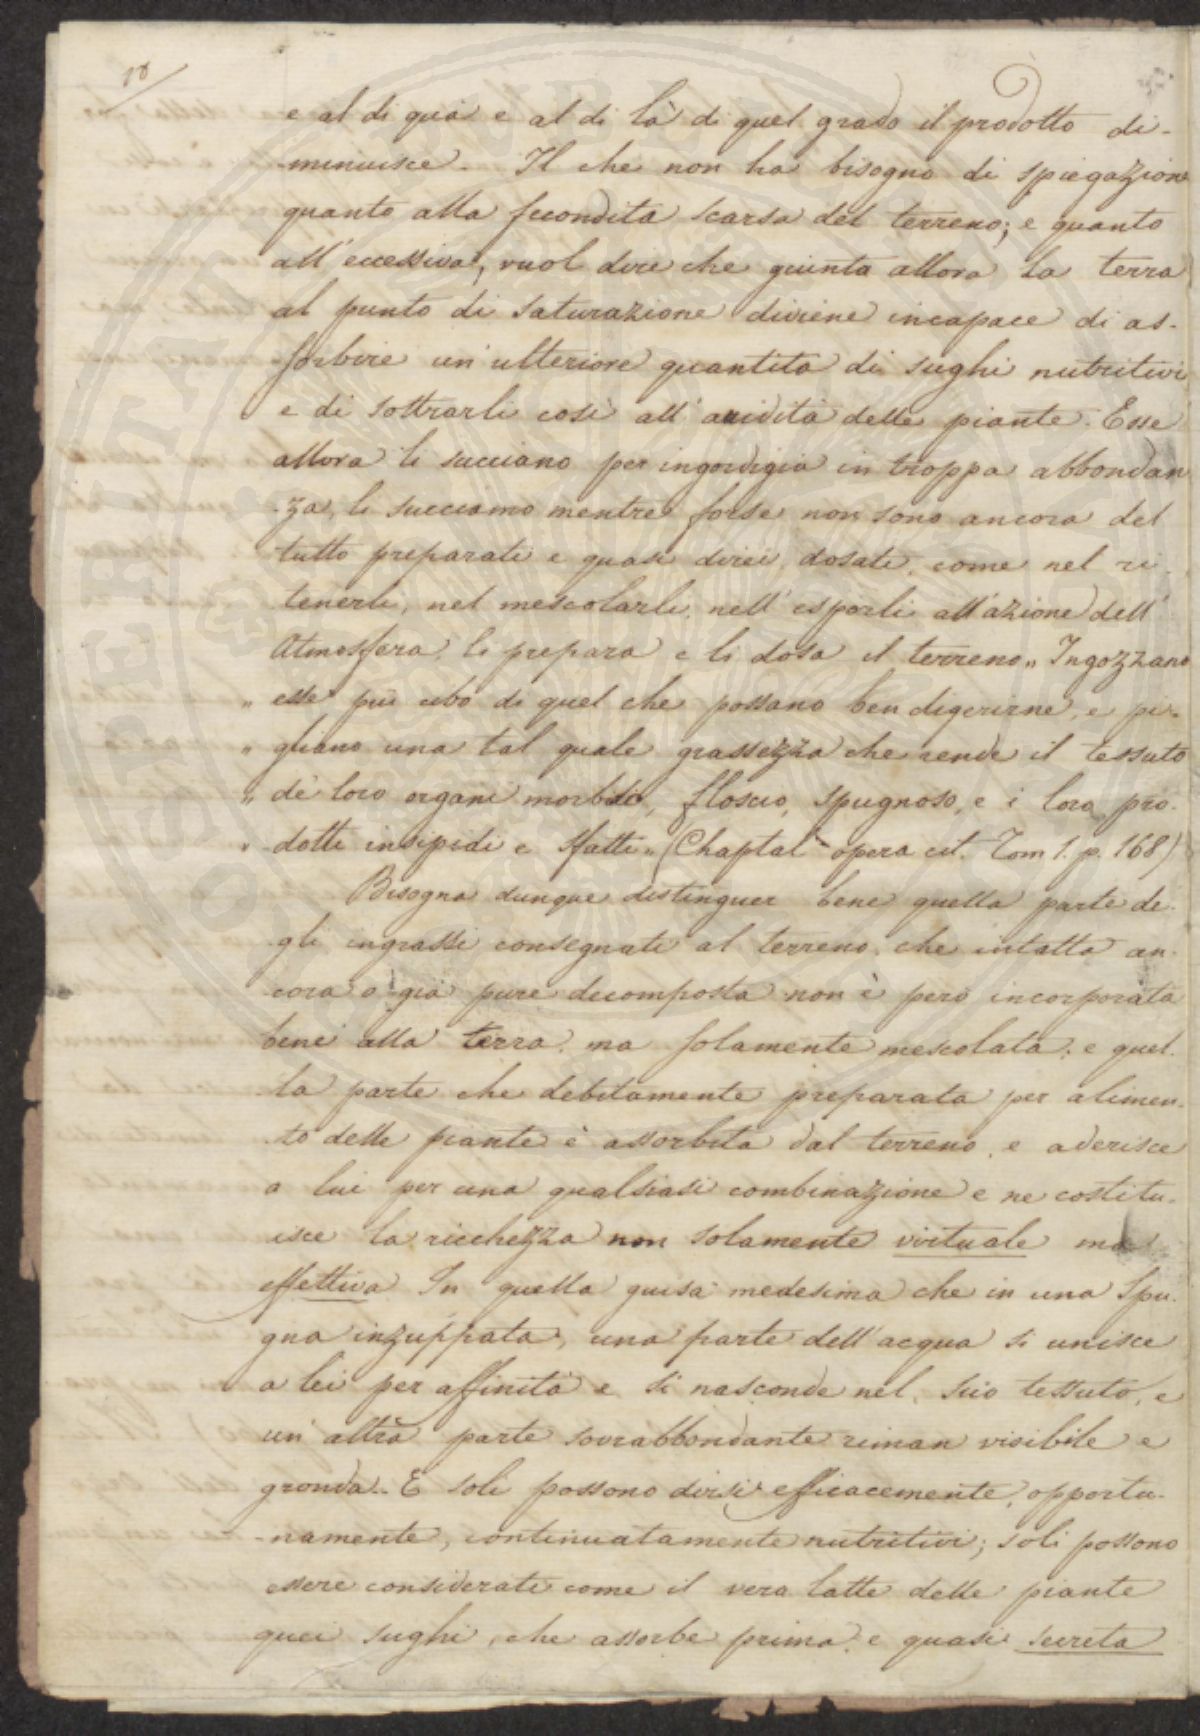 18
e al di quà e al di là di quel grado il prodotto di-
minuisce. Il che non ha bisogno di spiegazione
quanto alla fecondità scarsa del terreno; e quanto
all'eccessiva, vuol dire che giunta allora la terra
al punto di saturazione diviene incapace di as-
sorbire un'ulteriore quantità di sughi nutritivi
e di sottrarli così all'avidità delle piante. Esse
allora li succiano per ingordigia in troppa abbondan
-za, li succiano mentre forse non sono ancora del
tutto preparati e quasi direi dosati, come nel ri-
tenerli, nel mescolarli, nell'esporli all'azione dell'
Atmosfera, li prepara e li dosa il terreno „ Ingozzano
„ esse più cibo di quel che possano ben digerirne, e pi-
„ gliano una tal quale grassezza che rende il tessuto
„ de' loro organi morbido, floscio, spugnoso, e i loro pro-
„ dotti insipidi e sfatti „ (Chaptal opera cit. Tom 1. p. 168)
Bisogna dunque distinguer bene quella parte de-
gli ingrassi consegnati al terreno, che intatta an-
cora o già pure decomposta non è però incorporata
bene alla terra, ma solamente mescolata; e quel-
la parte che debitamente preparata per alimen-
to delle piante è assorbita dal terreno, e aderisce
a lui per una qualsiasi combinazione e ne costitu-
isce la ricchezza non solamente virtuale ma
effettiva In quella guisa medesima che in una Spu-
gna inzuppata, una parte dell'acqua si unisce
a lei per affinità e si nasconde nel suo tessuto, e
un'altra parte sovrabbondante riman visibile e
gronda. E soli possono dirsi efficacemente, opportu-
-namente, continuatamente nutritivi; soli possono
essere considerati come il vero latte delle piante
quei sughi, che assorbe prima e quasi secreta